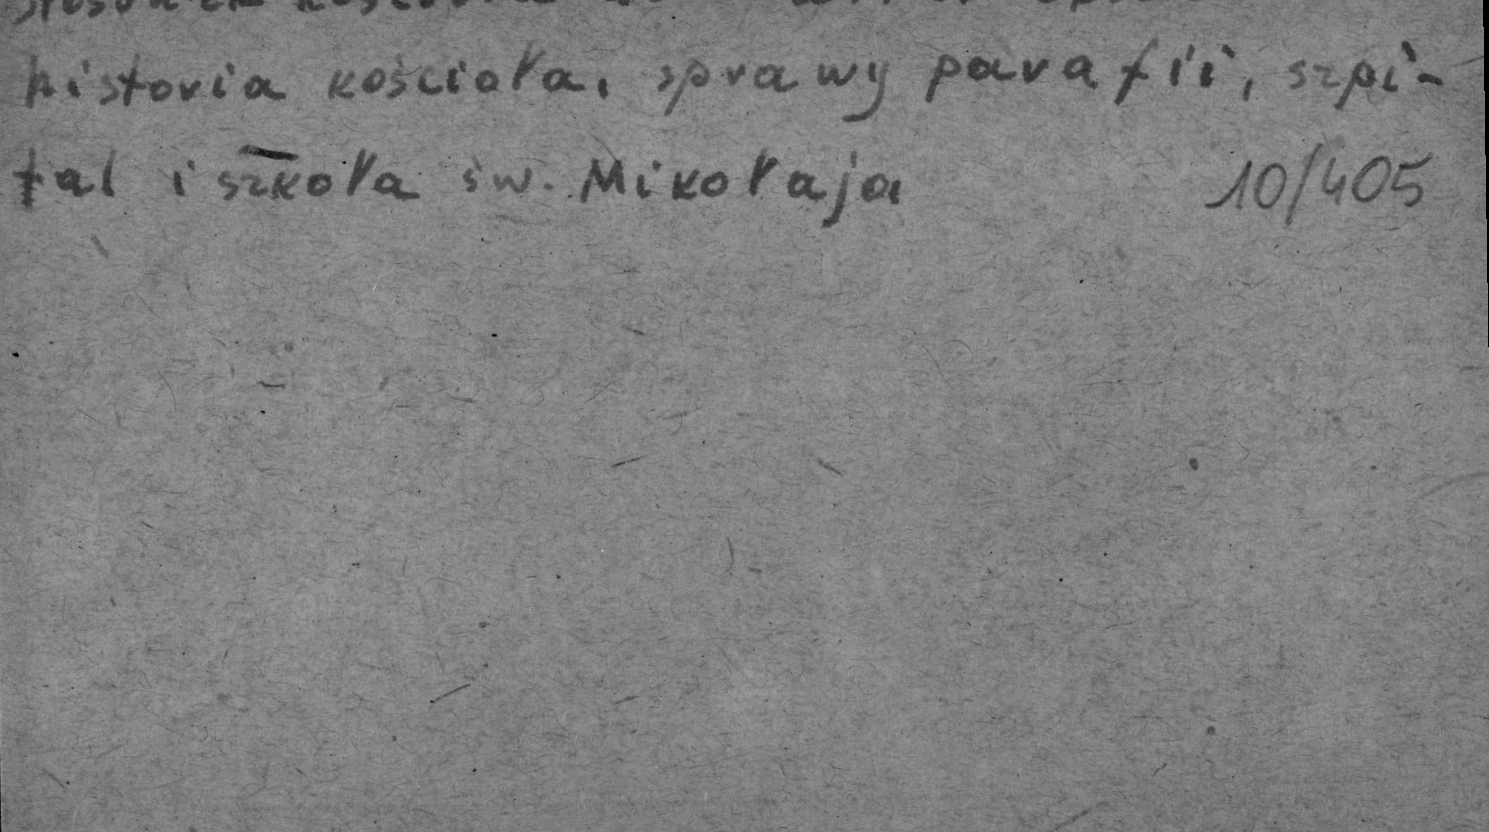 historia kościoła, sprawy parafii, szpi-
tal i szkoła św. Mikołaja 10/405